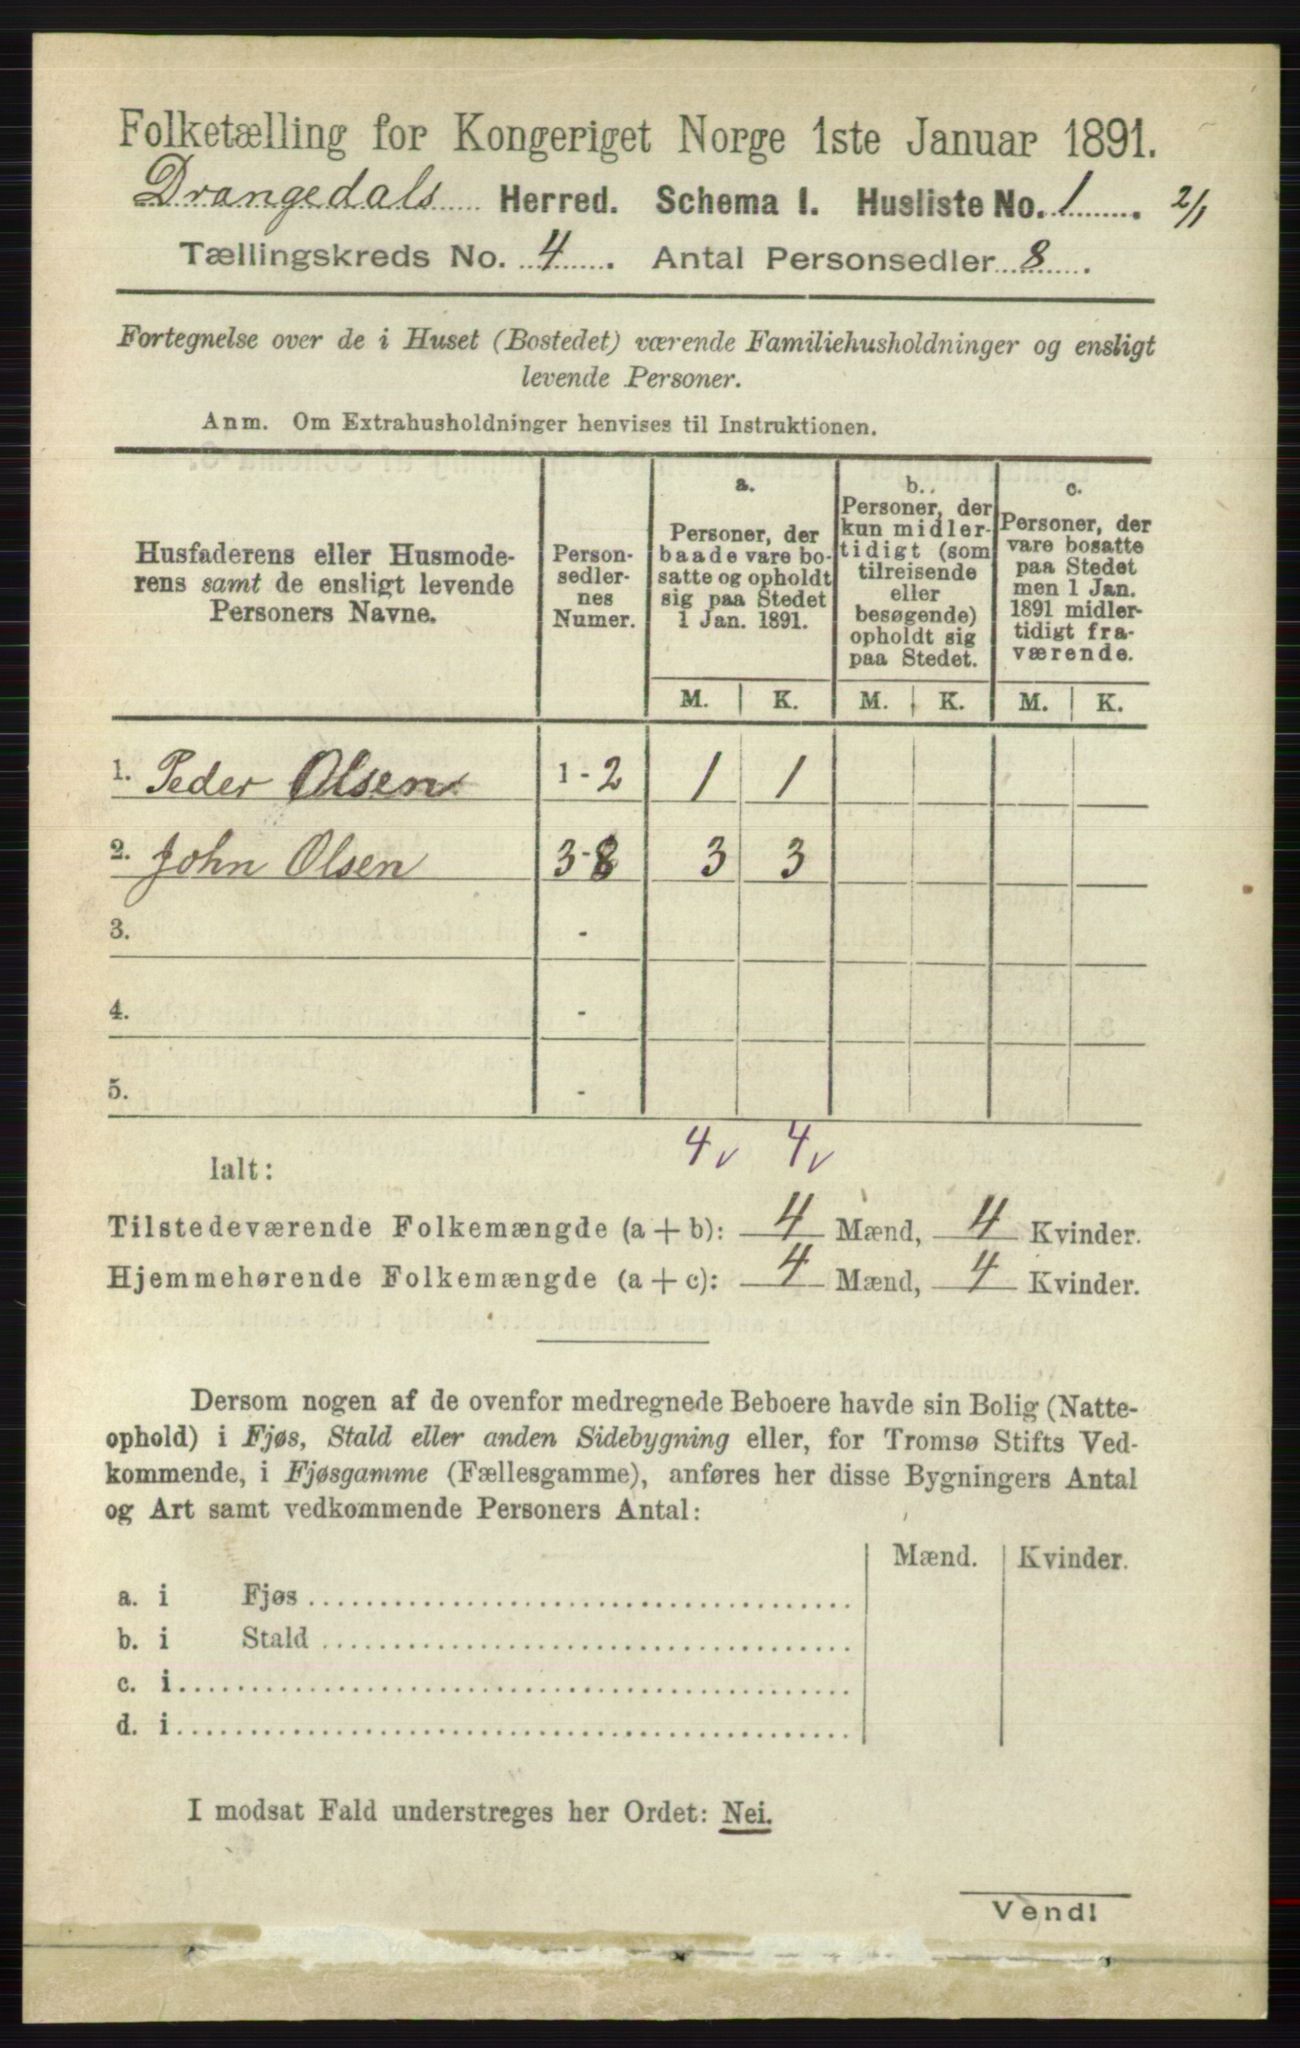 Folketælling for Kongeriget Norge 1ste Januar 1891.
Drangedals Herred. Schema I. Husliste No. 1. 2/1
Tællingskreds No. 4. Antal Personsedler 8.
Fortegnelse over de i Huset (Bostedet) værende Familiehusholdninger og ensligt
levende Personer.
Anm. Om Extrahusholdninger henvises til Instruktionen.
Husfaderens eller Husmode-
rens samt de ensligt levende
Personers Navne.
Person-
sedler-
nes
Numer.
a.
Personer, der
baade vare bo-
satte og opholdt
sig paa Stedet
1 Jan. 1891.
b.
Personer, der
kun midler-
tidigt (som
tilreisende
eller
besøgende)
opholdt sig
paa Stedet.
c.
Personer, der
vare bosatte
paa Stedet
men 1 Jan.
1891 midler-
tidigt fra-
værende.
M. K. M. K. M. K.
1. Peder Olsen 1-2 1 1
2. John Olsen 3-8 3 3
3. -
4. -
5. -
4 v 4 v
Ialt:
Tilstedeværende Folkemængde (a + b): 4 Mænd, 4 Kvinder.
Hjemmehørende Folkemængde (a + c): 4 Mænd, 4 Kvinder.
Dersom nogen af de ovenfor medregnede Beboere havde sin Bolig (Natte-
ophold) i Fjøs, Stald eller anden Sidebygning eller, for Tromsø Stifts Ved-
kommende, i Fjøsgamme (Fællesgamme), anføres her disse Bygningers Antal
og Art samt vedkommende Personers Antal:
Mænd. Kvinder.
a. i Fjøs
b. i Stald
c. i
d. i
I modsat Fald understreges her Ordet: Nei.
Vend!